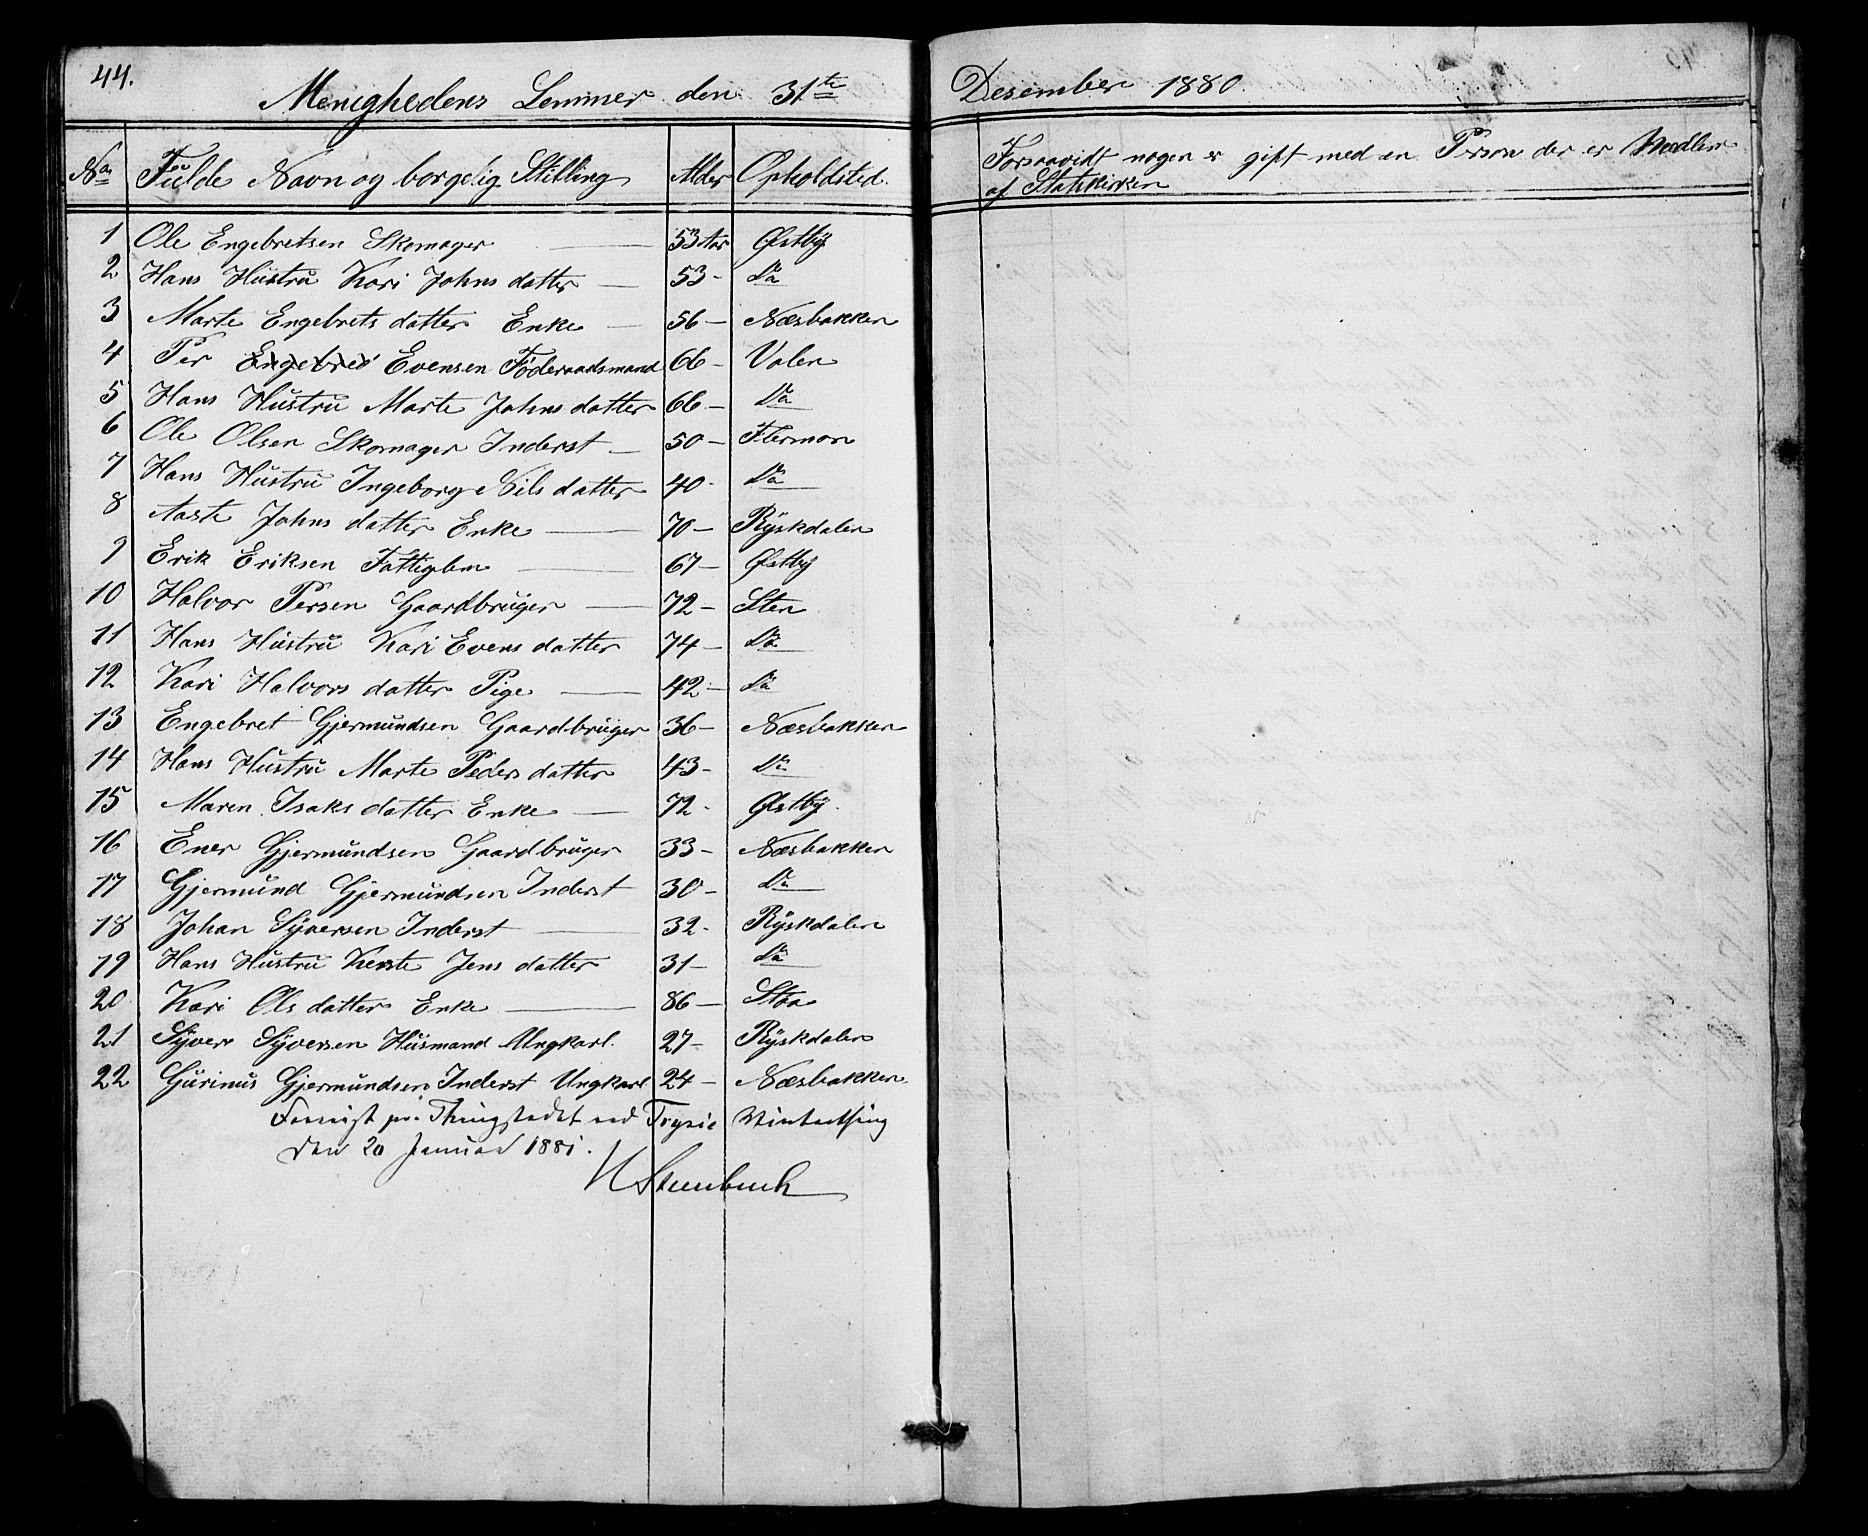 44.
Menighedens Lemmer den 31te Desember 1880
No Fulde Navn og borgelig Stilling Alder Opholdsted. Forsaavidt nogen er gift med en Person der er Medlem
af Statskirken
1 Ole Engebretsen Skomager 53 Aar Østby
2 Hans Hustru Kari Johns datter 53 - Do
3 Marte Engebrets datter Enke 56 - Næsbakken
4 Per Engebret Evensen Föderaadsmand 66 - Volen
5 Hans Hustru Marte Johns datter 66 - Do
6 Ole Olsen Skomager Inderst 50 - Flermon
7 Hans Hustru Ingeborg Nils datter 40 - Do
8 Aaste Johns datter Enke 70 - Ryskdalen
9 Erik Eriksen Fattiglem 67 - Østby
10 Halvor Persen Gaardbruger 72 - Sten
11 Hans Hustru Kari Evens datter 74 - Do
12 Kari Halvors datter Pige 42 - Do
13 Engebret Gjermundsen Gaardbruger 36 - Næsbakken
14 Hans Hustru Marte Peders datter 43 - Do
15 Maren Isaks datter Enke 72 - Østby
16 Ener Gjermundsen Gaardbruger 33 - Næsbakken
17 Gjermund Gjermundsen Inderst 30 - Do
18 Johan Syversen Inderst 32 - Ryskdalen
19 Hans Hustru Kerste Jens datter 31 - Do
20 Kari Ols datter Enke 86 - Støa
21 Syver Syversen Husmand Ungkarl. 27 - Ryskdalen
22 Gurinus Gjermundsen Inderst Ungkarl 24 - Næsbakken
Fremlagt paa Thingstedet ved Trysil Vinterthing
den 20 Januar 1881.
H Steenbuch